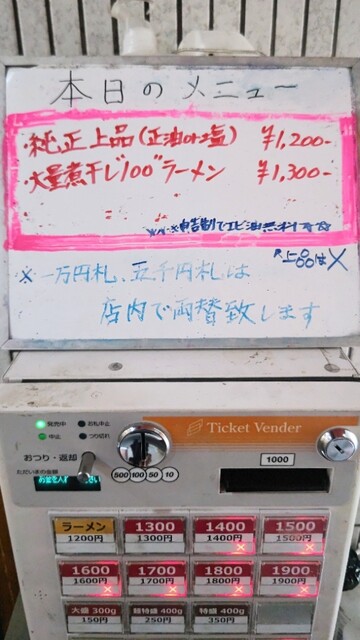 本日のメニュー
純正上品(正油or塩) ¥1,200-
大量煮干し"100"ラーメン ¥1,300-
※一万円札、五千円札は
上品は×
店内で両替致します
発売中 お札中止
中止 つり切れ
おつり・返却
ただいまの金額
500 100 50 10
Ticket Vender
1000
ラーメン 1300 1400 1500
1200円 1300円 1400円 1500円
1600 1700 1800 1900
1600円 1700円 1800円 1900円
大盛 300g 超特盛 400g 特盛 400g
150円 250円 350円